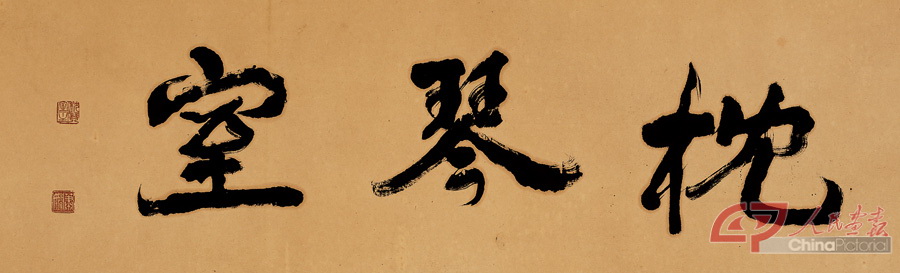 枕琴室
人民画报
ChinaPictorial